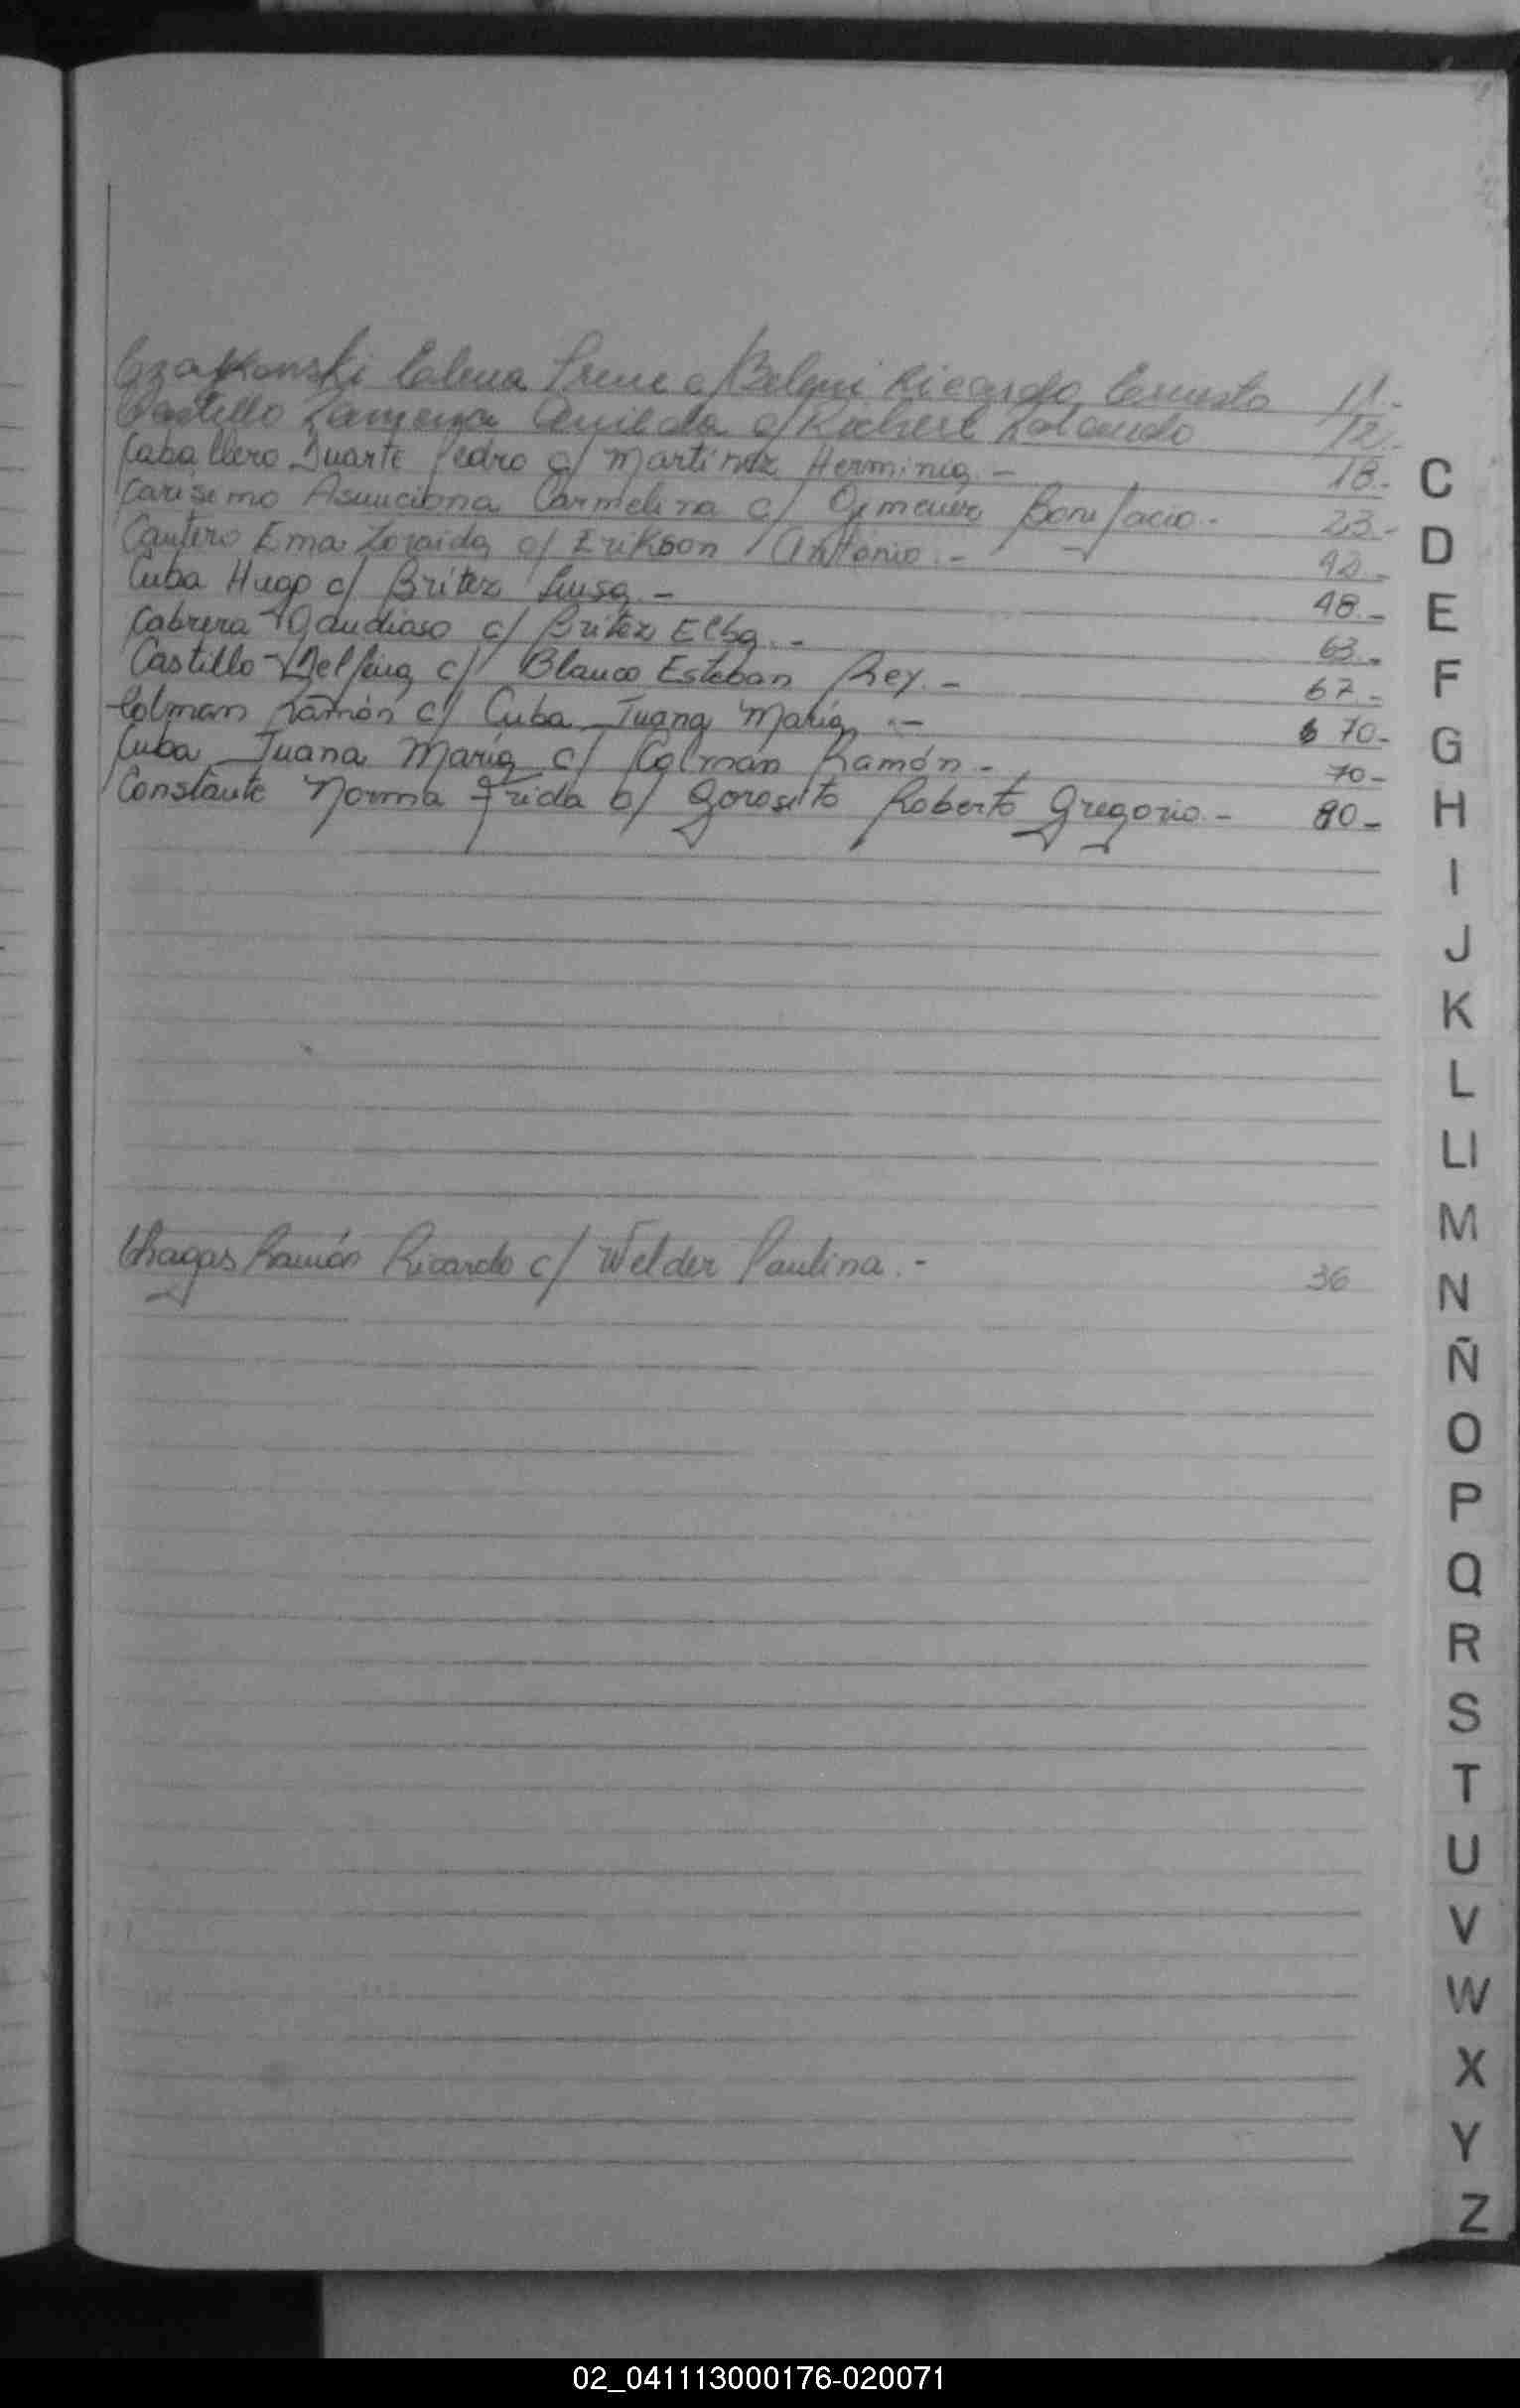 Czajkowski Elena Irene c/ Beloni Ricardo Ernesto 11.-
Castillo Anilda c/ Richert Rolando 12.-
Caballero Duarte Pedro c/ Martinez Herminia.- 18.-
Carisimo Asunciona Carmelina c/ Gimenez Bonifacio.- 23.-
Cantero Ema Zoraida c/ Erikson Antonio.- 42.-
Cuba Hugo c/ Britez Luisa.- 48.-
Cabrera Gaudioso c/ Britez Elba.- 63.-
Castillo Delfina c/ Blanco Esteban Rey.- 67.-
Colman Ramón c/ Cuba Juana María.- 70-
Cuba Juana María c/ Colman Ramón- 70-
Constante Norma Frida c/ Gorosito Roberto Gregorio.- 80-
Chagas Ramón Ricardo c/ Welder Paulina.- 36
C
D
E
F
G
H
I
J
K
L
Ll
M
N
Ñ
O
P
Q
R
S
T
U
V
W
X
Y
Z
02_041113000176-020071